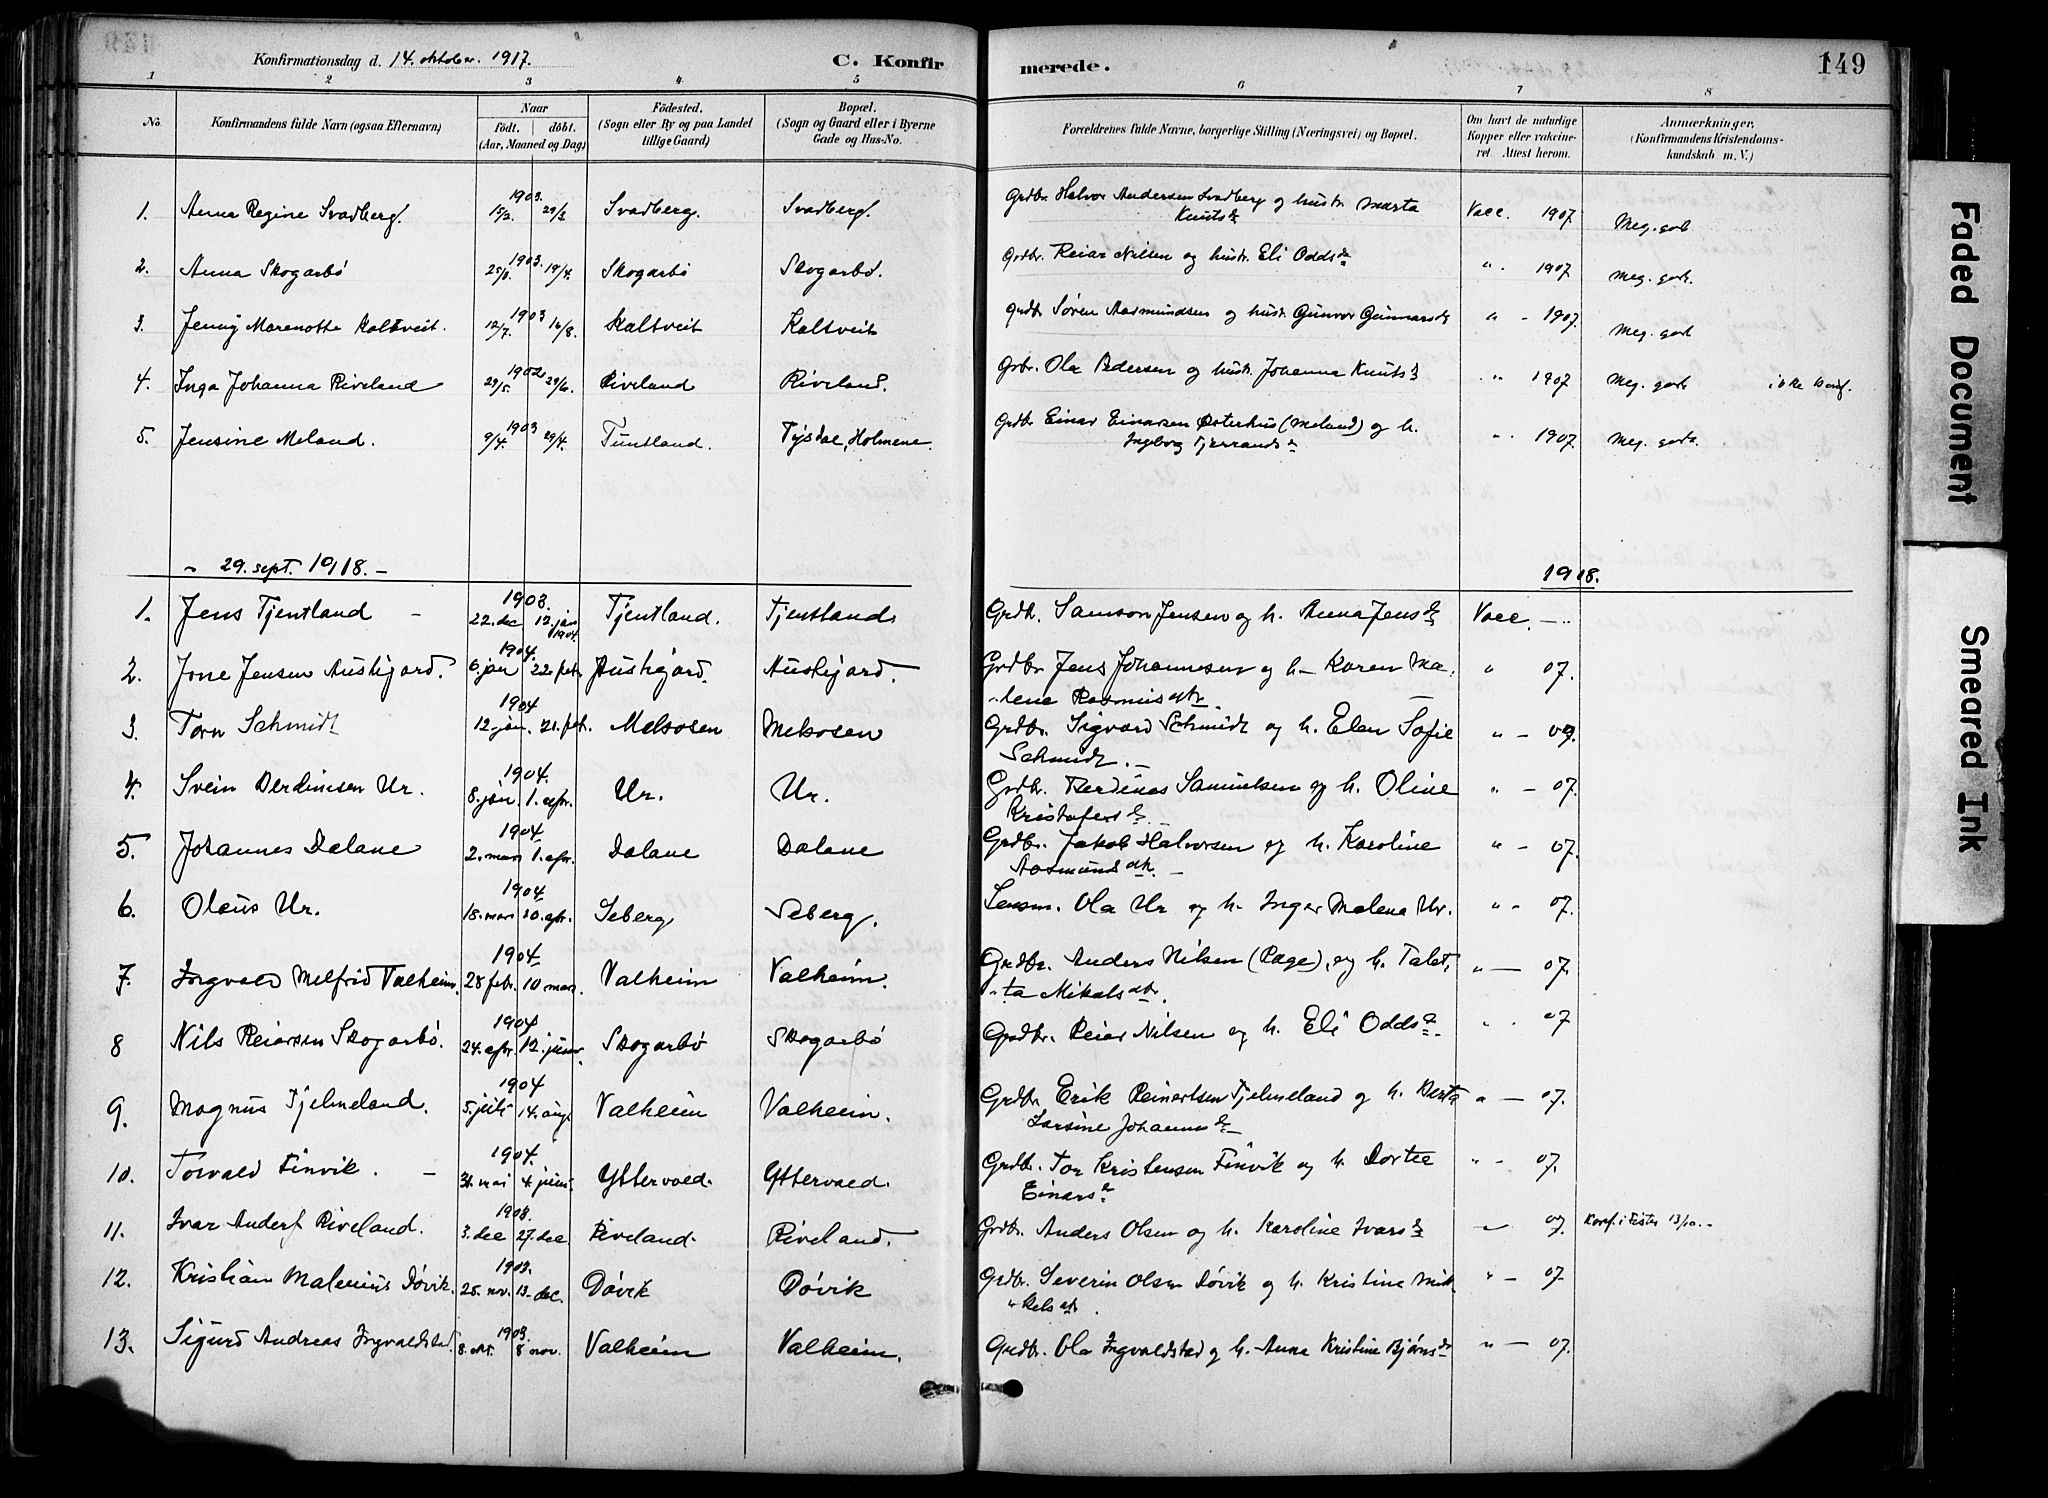 Konfirmationsdag d. 14. oktober. 1917.
C. Konfirmerede.
149
1 2 3 4 5 6 7 8
No. Konfirmandens fulde Navn (ogsaa Efternavn) Naar født. døbt. (Aar, Maaned og Dag) Fødested. (Sogn eller By og paa Landet tillige Gaard) Bopæl. (Sogn og Gaard eller i Byerne Gade og Hus-No. Forældrenes fulde Navne, borgerlige Stilling (Næringsvei) og Bopæl. Om havt de naturlige Kopper eller vakcineret. Attest herom. Anmærkninger, (Konfirmandens Kristendomskundskab m. V.)
1. Anna Regine Svadberg. 1903. 15/2. 29/3 Svadberg. Svadberg. Grdbr. Halvor Andersen Svadberg og hustr. Marta Knutsdr. Vacc. 1907. Meg. godt
2. Anna Skogarbø 1903. 19/4. Skogarbø Skogarbø. Grdbr. Reiar Nilsen og hustr. Eli Oddsdr. " 1907. Meg. godt.
3. Jenny Marenotte Kaltveit. 1903 12/7. 16/8. Kaltveit Kaltveit Grdbr. Søren Aasmundsen og hustr. Gunvor Gunnarsdr. " - 1907. Meg. godt
4. Inga Johanna Riveland 1902 29/5. 29/6. Riveland Riveland. Grbr. Ola Pedersen og hustr. Johanna Knutsdr. " 1907. Meg. godt ikke konf.
5. Jensine Meland. 1903 9/4. 29/4. Tuntland. Tysdal, Holmene. Grdbr. Einar Einarsen Østerhus (Meland) og h. Ingeborg Tjerrandsdr. " 1907. Meg. godt.
" 29. sept. 1918. - 1918.
1. Jens Tjentland - 1903. 22. dec 12. jan 1904. Tjentland. Tjentland Grdbr. Samson Jensen og h. Anna Jensdr. Vacc. -
2. Jone Jensen Austigard. 1904. 6. jan 22. feb. Austigard. Austigard. Grdbr. Jens Johannesen og h. - Karen Malene Rasmusdtr. " 07.
3. Torn Schmidt 1904 12. jan. 21. feb. Melsosen Melsosen Grdbr. Sigvard Schmidt og h. Elen Sofie Schmidt. - " - 09.
4. Svein Berdinesen Ur. 1904. 8. jan. 1. apr. Ur. Ur. Grdbr. Berdines Samuelsen og h. Oline Kristofersdr. - " - 07.
5. Johannes Dalane 1904 2. mars 1. apr. Dalane Dalane Grdbr. Jakob Halvorsen og h. Karoline Aasmundsdtr. - " - 07.
6. Olaus Ur. 1904 18. mars 10. apr. Seberg Seberg. Lensm. Ola Ur og h. Inger Malena Ur. " - 07.
7. Ingvald Melfrid Valheim. 1904 28 febr. 10 mars. Valheim Valheim. Grdbr. Anders Nilsen (Rage), og h. Taletta Mikalsdtr. " - 07.
8 Nils Reiarsen Skogarbø. 1904 24. apr. 12. juni. Skogarbø Skogarbø Grdbr. Reiar Nilsen og h. Eli Oddsdr. " 07
9. Magnus Tjelmeland. 1904 5. juli 14. aug. Valheim Valheim. Grdbr. Erik Reinertsen Tjelmeland og h. Berta Larsine Johannesdr. - " - 07.
10. Torvald Finvik. - 1904. 31. mai 4. juni. Yttervoed. Yttervoed. Grdbr. Tor Kristensen Finvik og h. Dortea Einarsdr. " - 07.
11. Ivar Anderf Riveland. 1903. 3. dec 27. dec Riveland. Riveland. Grdbr. Anders Olsen og h. Karoline Ivarsdr. " 07. Konf. i Fister 13/10. -
12. Kristian Malenius Døvik. 1903. 25. nov. 13. dec. Døvik Døvik Grdbr. Severin Olsen Døvik og h. Kristine Mikkelsdtr. " - 07.
13. Sigurd Andreas Ingvaldstad. 1903. 8. okt. 8 nov. Valheim Valheim. Grdbr. Ola Ingvaldstad og h. Anna Kristine Bjørnsdr. " - 07.
Faded Document
Smeared Ink